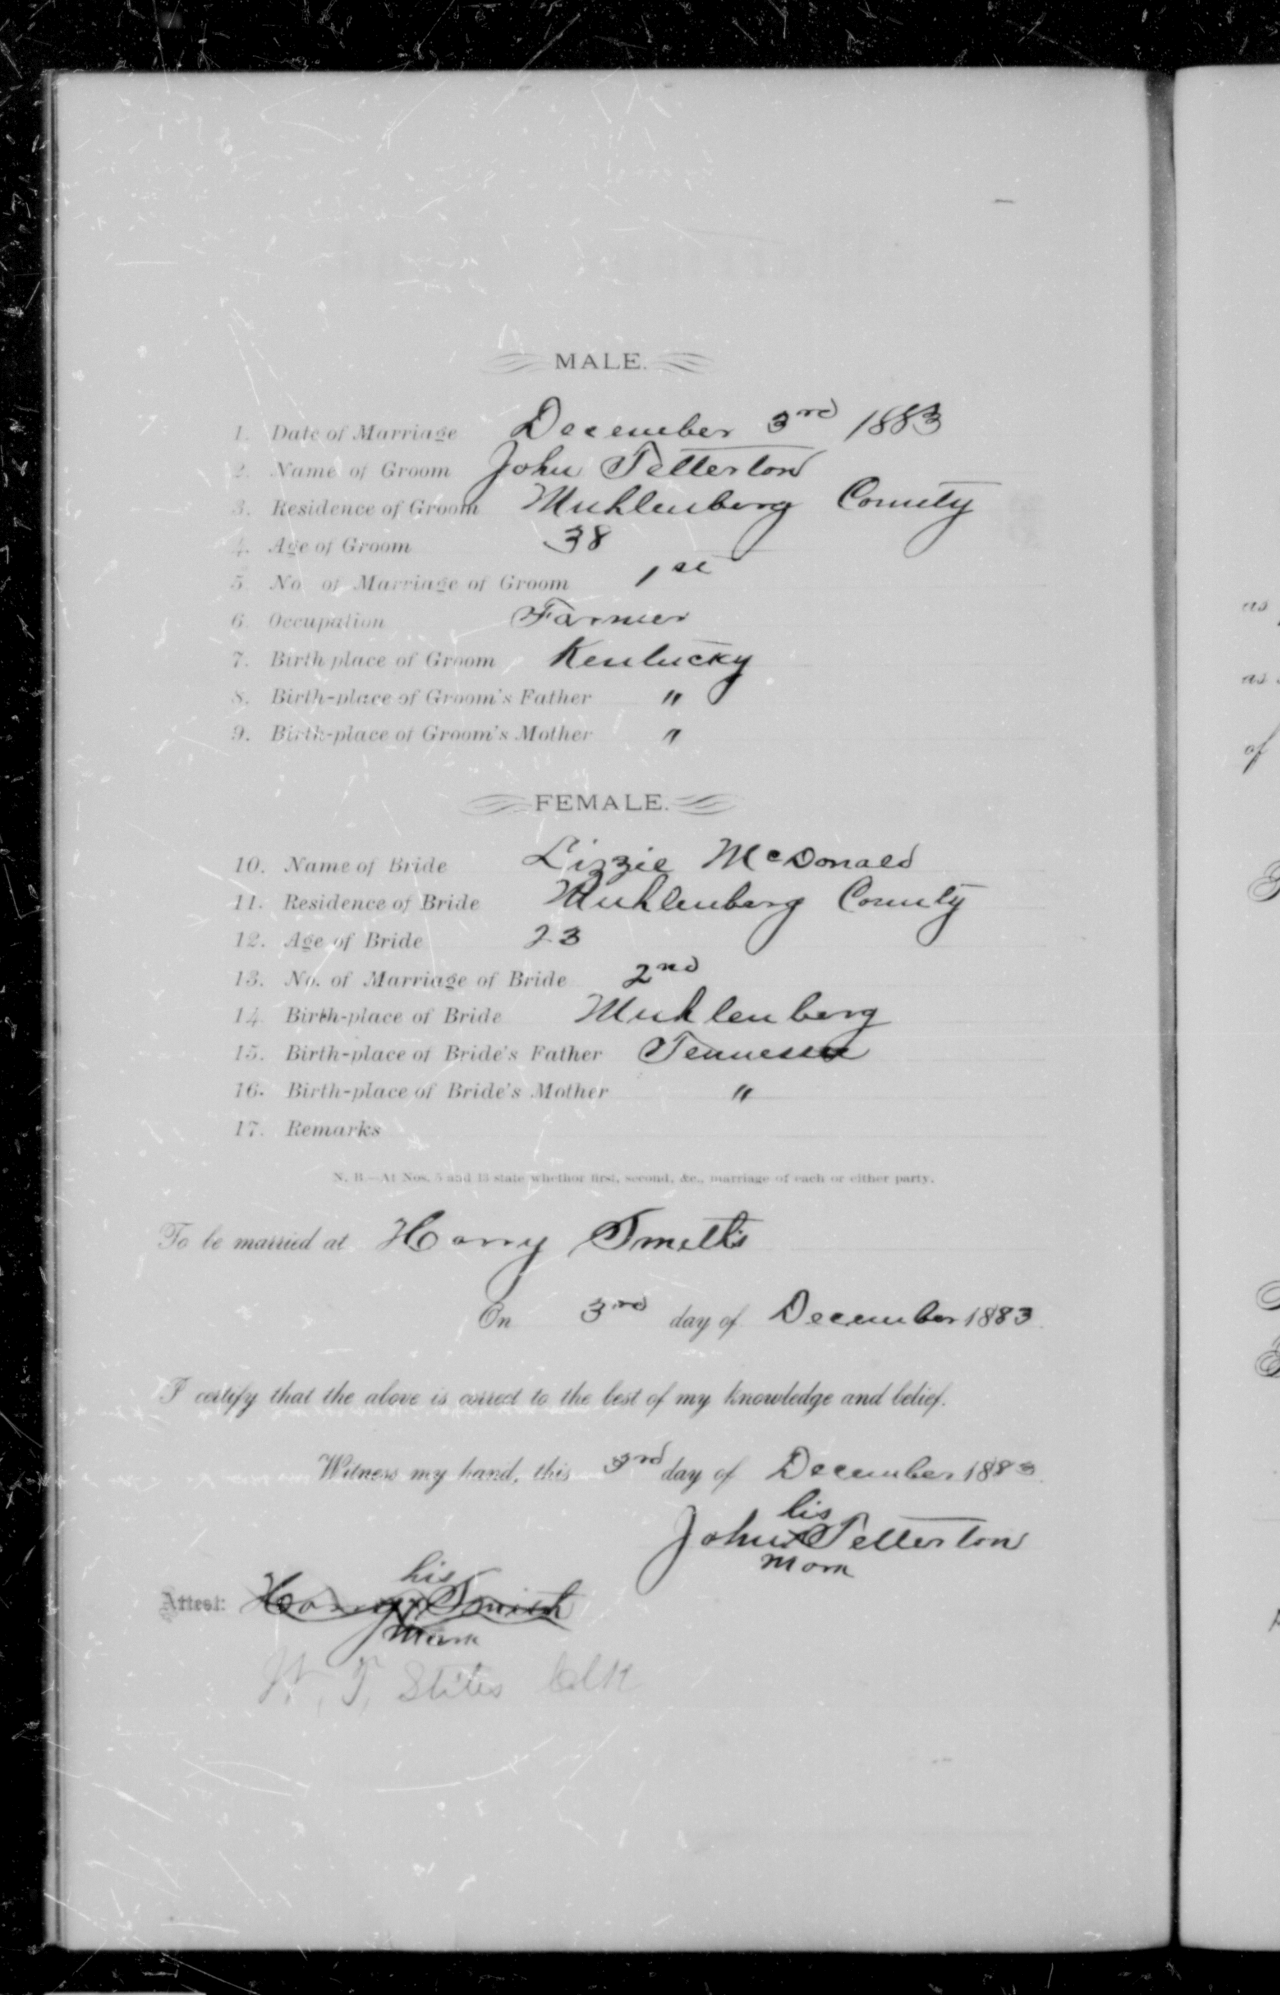 MALE.
1. Date of Marriage December 3rd 1883
2. Name of Groom John Tetterton
3. Residence of Groom Muhlenberg County
4. Age of Groom 38
5. No. of Marriage of Groom 1st
6. Occupation Farmer
7. Birth place of Groom Kentucky
8. Birth-place of Groom's Father "
9. Birth-place of Groom's Mother "
FEMALE.
10. Name of Bride Lizzie McDonald
11. Residence of Bride Muhlenberg County
12. Age of Bride 23
13. No. of Marriage of Bride 2nd
14. Birth-place of Bride Muhlenberg
15. Birth-place of Bride's Father Tennessee
16. Birth-place of Bride's Mother "
17. Remarks
N. B.—At Nos. 5 and 13 state whether first, second, &c., marriage of each or either party.
To be married at Harry Smith's
On 3rd day of December 1883.
I certify that the above is correct to the best of my knowledge and belief.
Witness my hand, this 3rd day of December 1883.
his
John x Tetterton
mark
his
Attest: Harry x Smith
mark
W. T. Stiles Clk
as
as
of